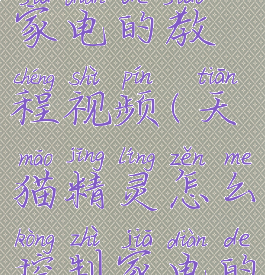 jiā diàn de jiào
家电的教
chéng shì pín tiān
程视频(天
māo jīng líng zěn me
猫精灵怎么
kòng zhì jiā diàn de
控制家电的